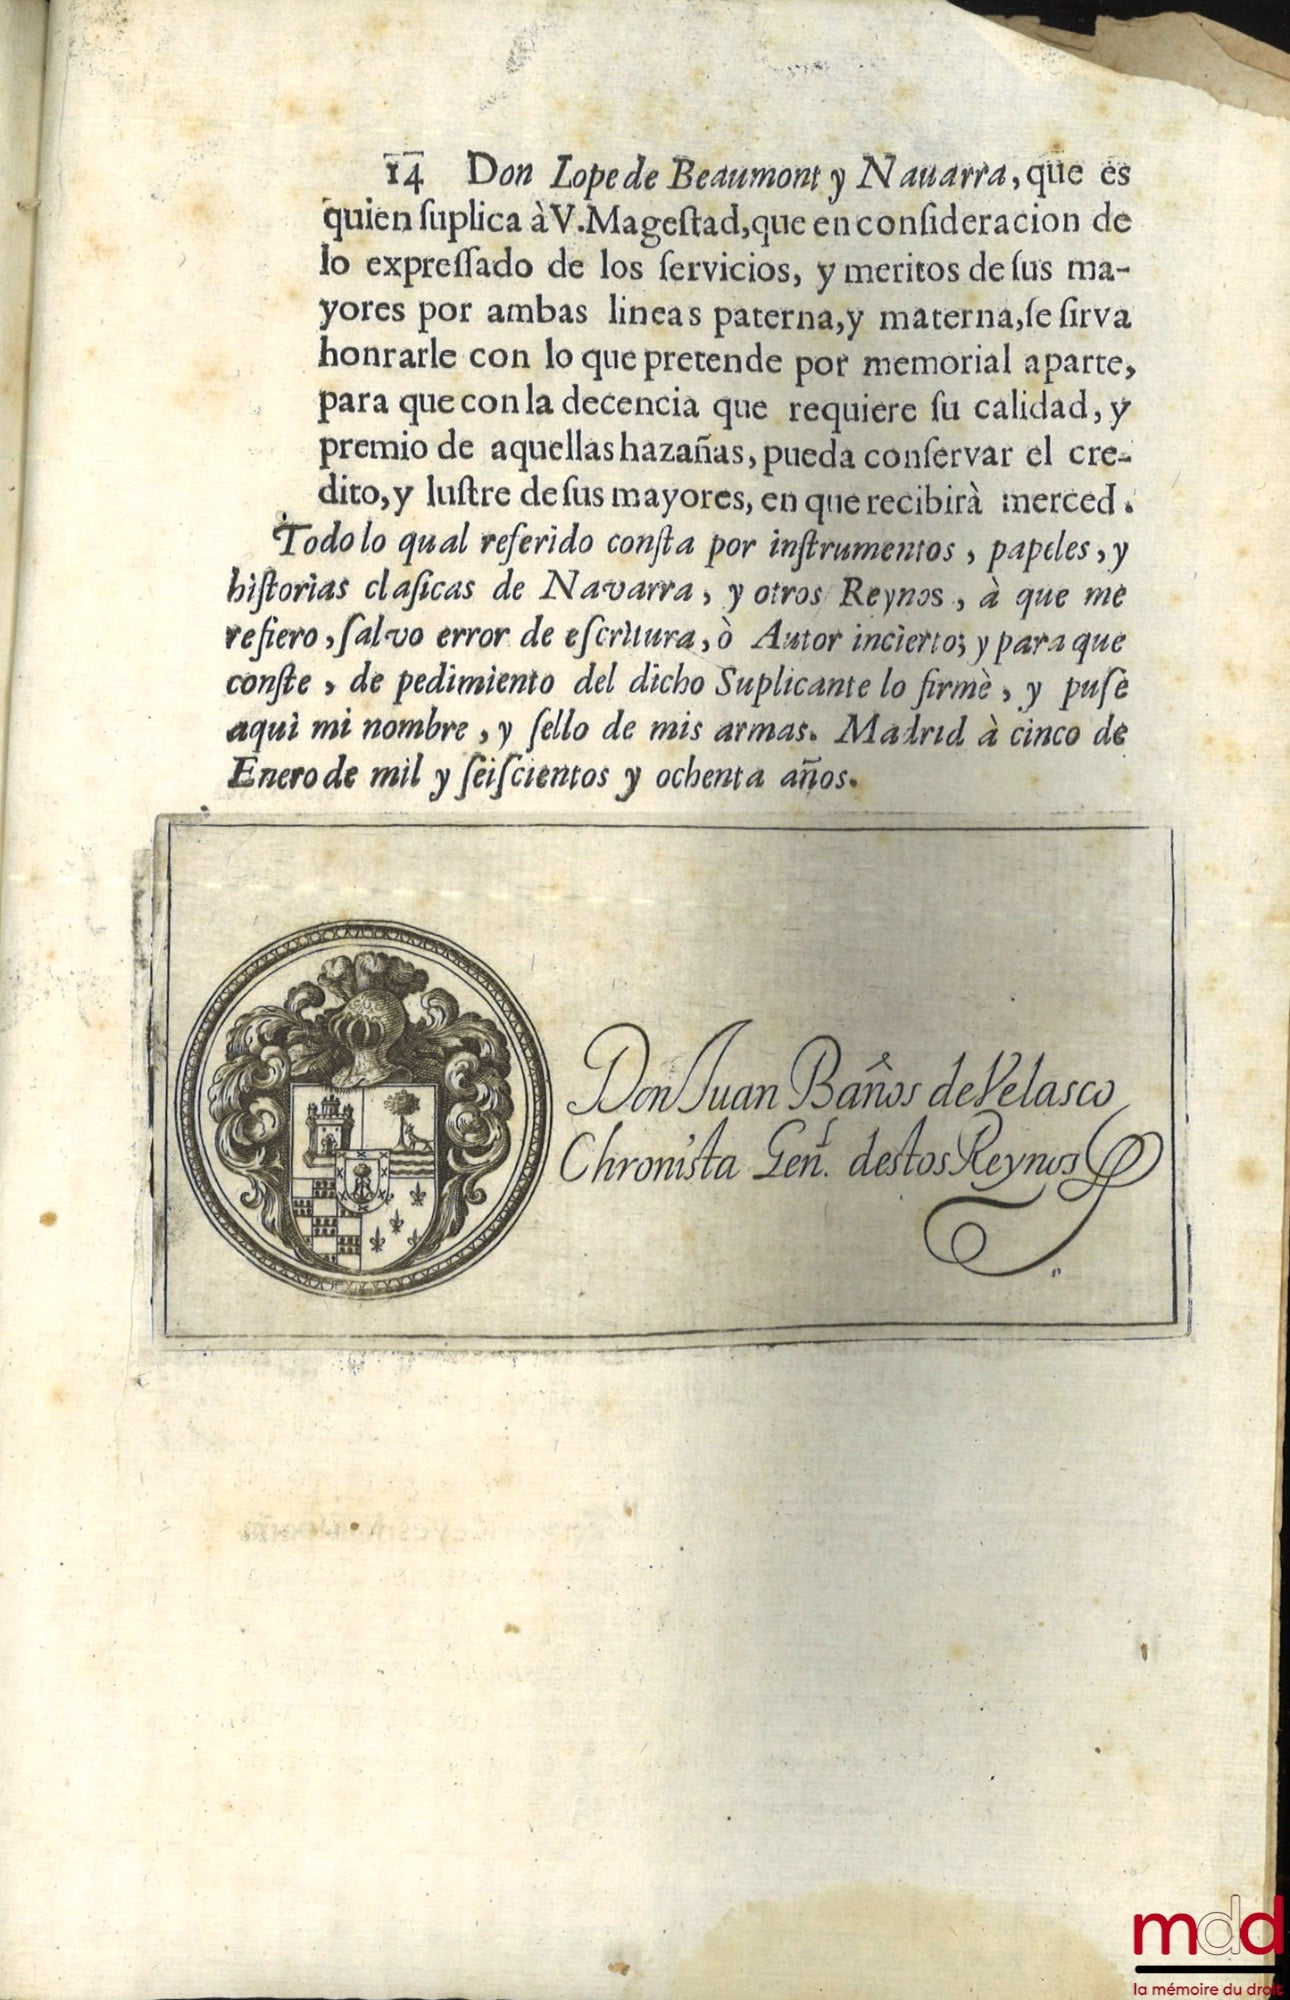 14 Don Lope de Beaumont y Nauarra, que es
quien ſuplica à V. Mageſtad, que en conſideracion de
lo expreſſado de los ſervicios, y meritos de ſus ma-
yores por ambas lineas paterna, y materna, ſe ſirva
honrarle con lo que pretende por memorial aparte,
para que con la decencia que requiere ſu calidad, y
premio de aquellas hazañas, pueda conſervar el cre-
dito, y luſtre de ſus mayores, en que recibirà merced.
Todo lo qual referido conſta por inſtrumentos, papeles, y
hiſtorias claſicas de Navarra, y otros Reynos, à que me
refiero, ſalvo error de eſcritura, ò Autor incierto; y para que
conſte, de pedimiento del dicho Suplicante lo firmè, y puſe
aqui mi nombre, y ſello de mis armas. Madrid à cinco de
Enero de mil y ſeiſcientos y ochenta años.
Don Juan Baños de Velasco
Chronista Gen.l destos Reynos
mdd
la mémoire du droit